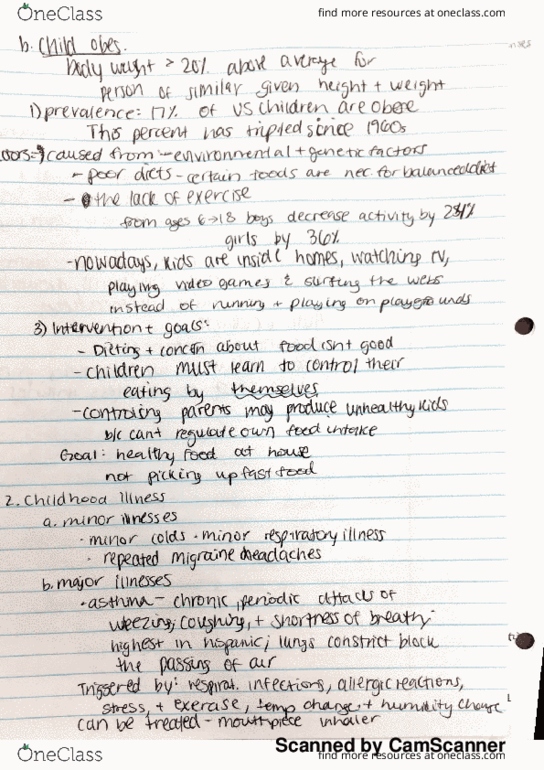 OneClass
find more resources at oneclass.com
b. Child obes.
body weight > 20% above average for
person of similar given height + weight
1) prevalence: 17% of US children are obese
This percent has tripled since 1960s
caused from - environmental + genetic factors
- poor diets - certain foods are nec. for balanced diet
- the lack of exercise
from ages 6→18 boys decrease activity by
girls by 36%
- nowadays, kids are inside homes, watching TV,
playing video games & surfing the webs
instead of running + playing on playgrounds
3) Intervention + goals:
- Dieting + concern about food isnt good
- children must learn to control their
eating by themselves
- controling parents may produce unhealthy kids
b/c cant regulate own food intake
Goal: healthy food at house
not picking up fast food
2. Childhood illness
a. minor illnesses
· minor colds · minor respiratory illness
· repeated migraine headaches
b. major illnesses
· asthma - chronic, periodic attacks of
weezing, coughing, + shortness of breath
highest in hispanic; lungs constrict block
the passing of air
Triggered by: respirat. infections, allergic reactions,
stress, + exercise, temp change, + humidity change
can be treated - mouthpiece inhaler
Scanned by CamScanner
OneClass
find more resources at oneclass.com